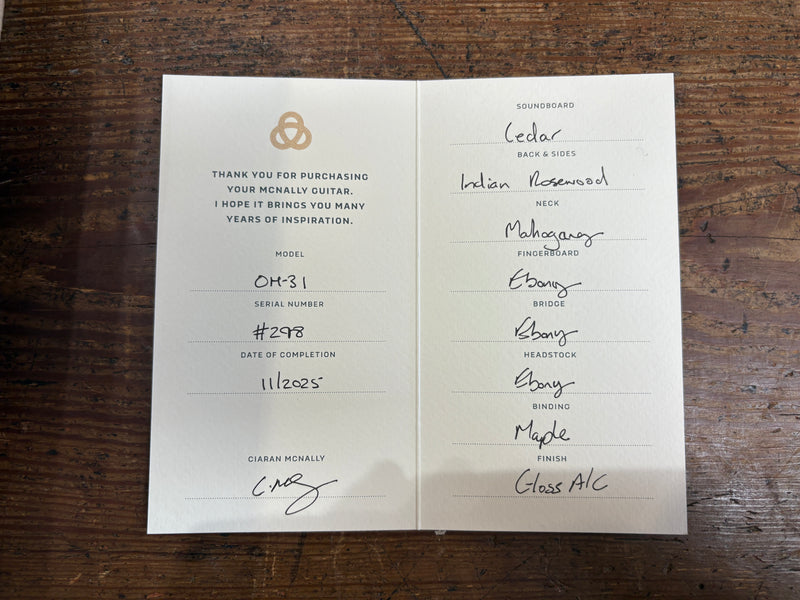 THANK YOU FOR PURCHASING
YOUR MCNALLY GUITAR.
I HOPE IT BRINGS YOU MANY
YEARS OF INSPIRATION.
MODEL
OM-31
SERIAL NUMBER
#298
DATE OF COMPLETION
11/2025
CIARAN MCNALLY
C. McN
SOUNDBOARD
Cedar
BACK & SIDES
Indian Rosewood
NECK
Mahogany
FINGERBOARD
Ebony
BRIDGE
Ebony
HEADSTOCK
Ebony
BINDING
Maple
FINISH
Gloss A/C